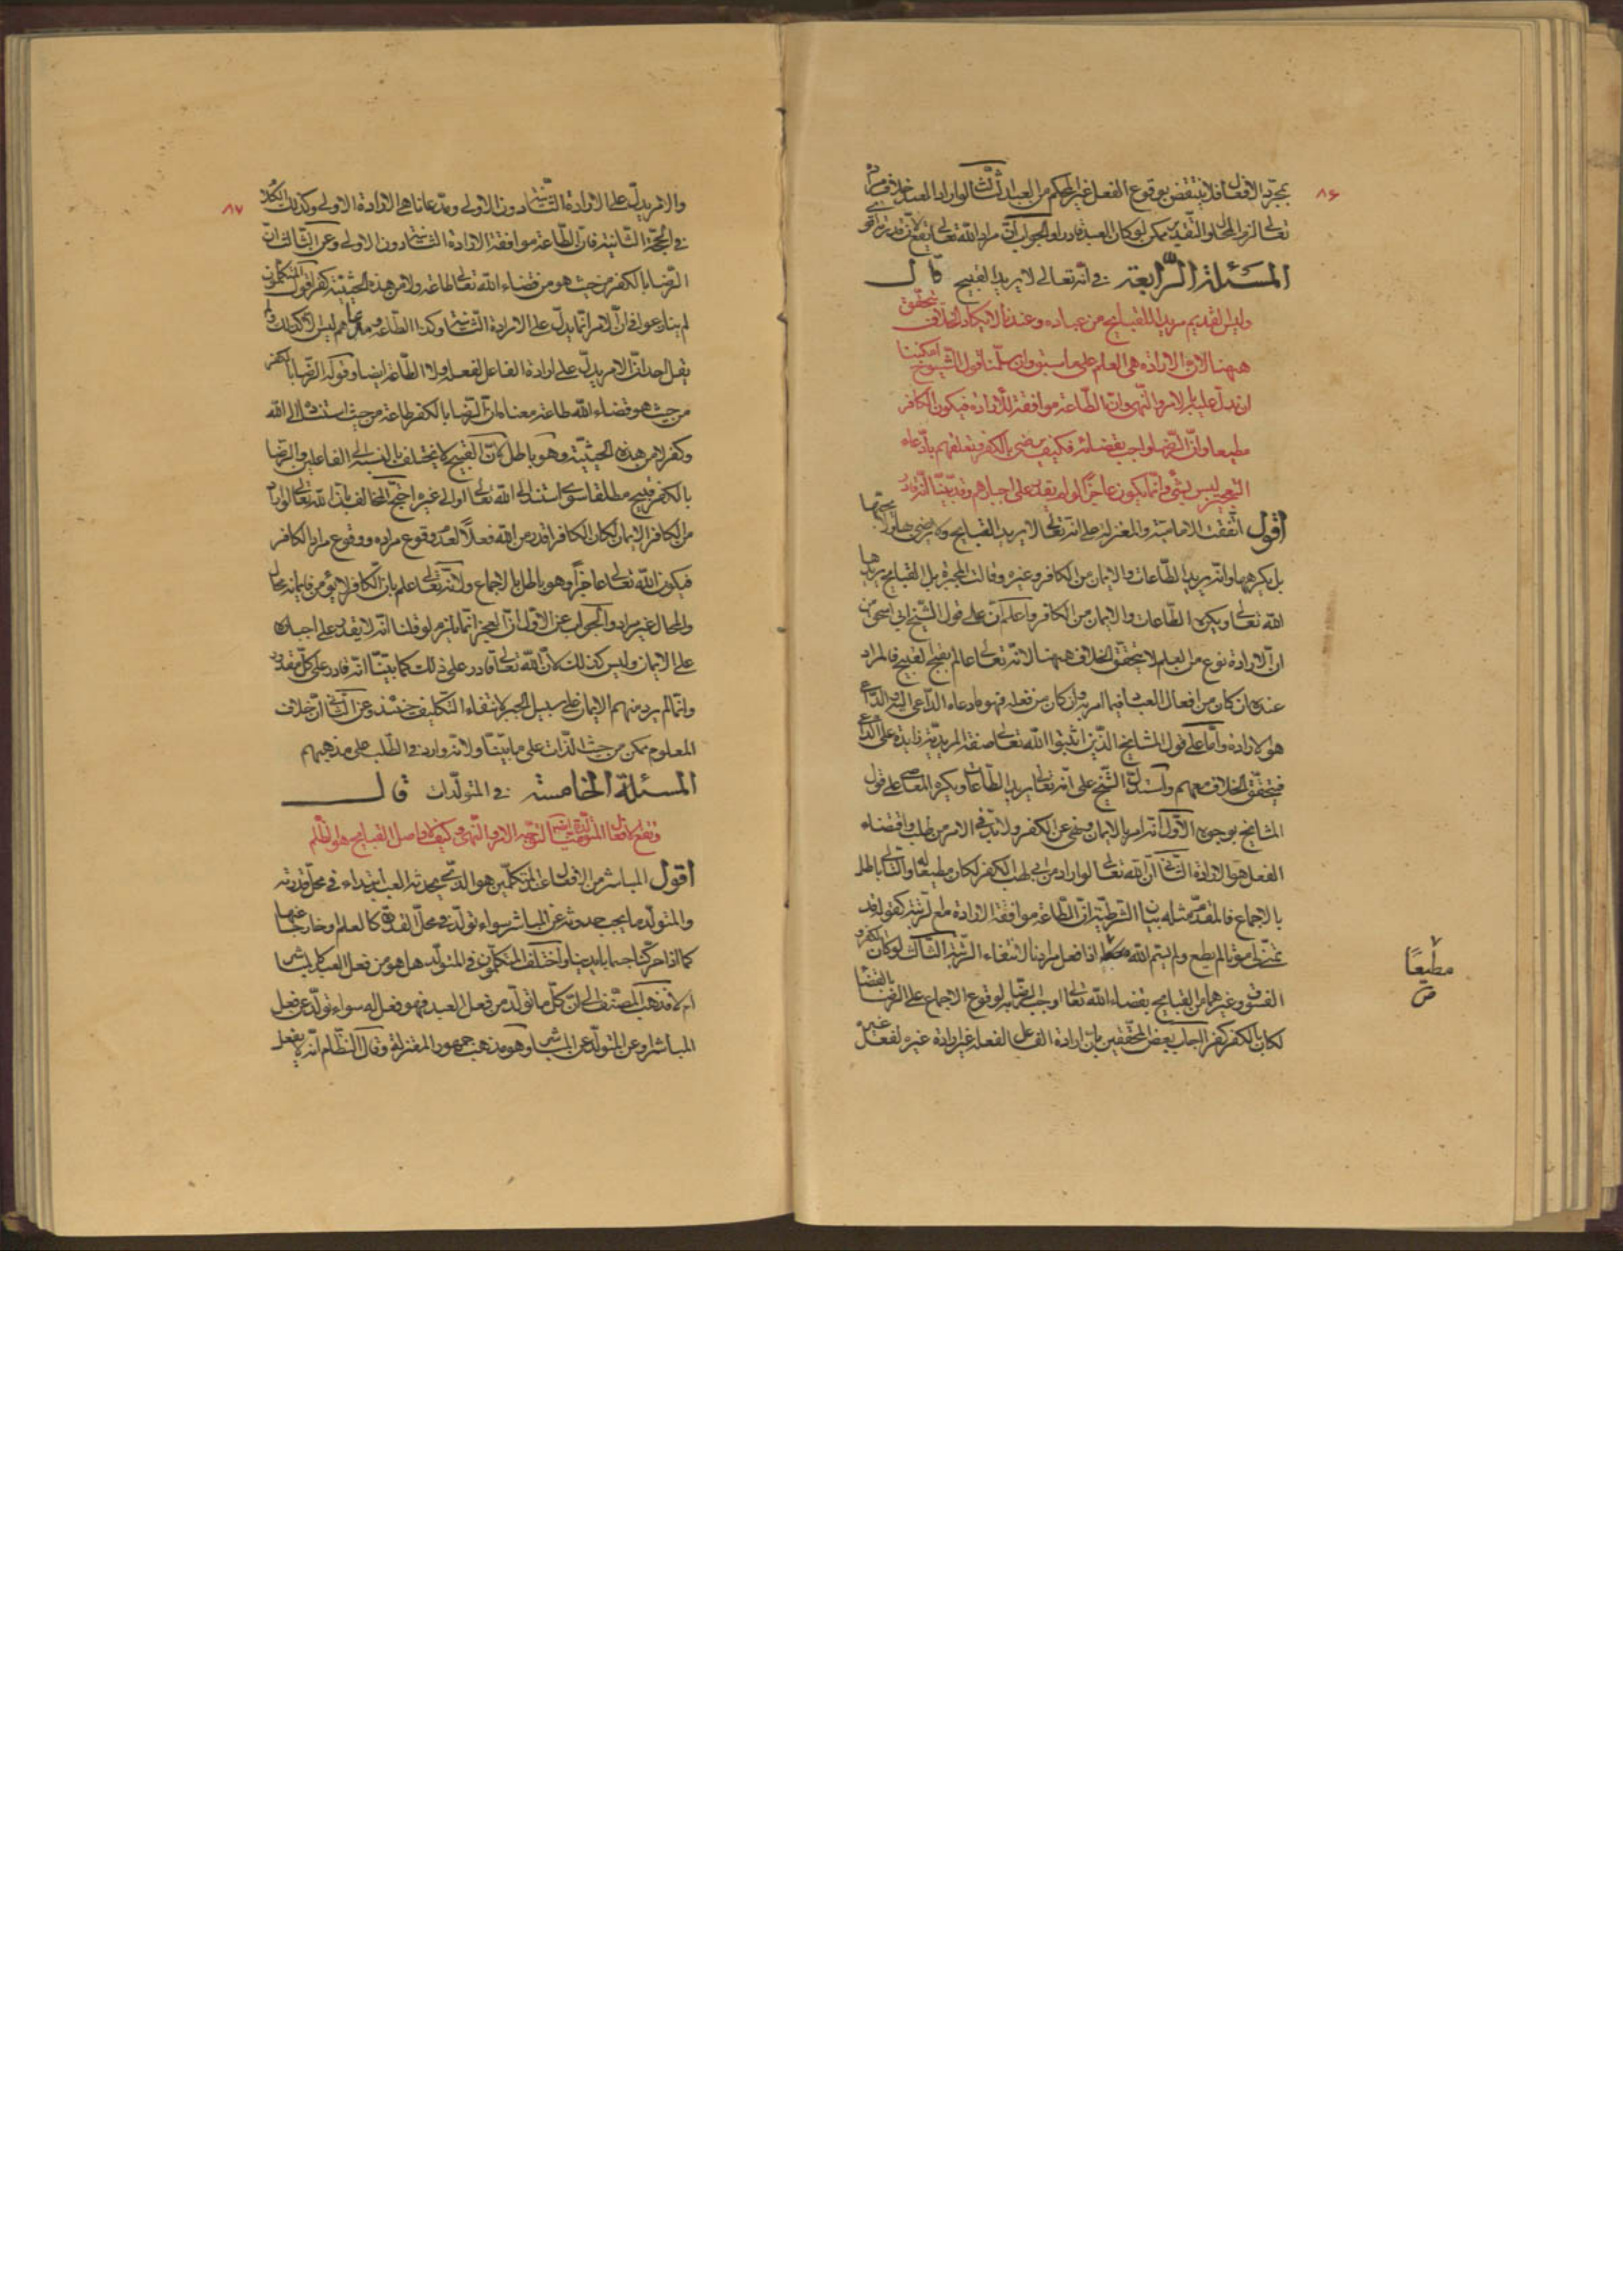 ٨۶
بمجرّد الافعال فلا ينتقض بوقوع الفعل غير المحكم من العبد الثالث لو اراد العبد خلاف مراد
تعالى لزم المحال والتقدير ممكن لو كان العبد قادرا والجواب ان مراد الله تعالى يقع لان قدرته اقوى
المسئلة الرابعة في انه تعالى لا يريد القبيح قال
وليس القديم مريدا للقبايح من عباده وعندنا لا يكاد الخلاف يتحقق
ههنا لان الارادة هي العلم على ما سبق وان سلمنا قول الشيوخ امكننا
ان ندل عليه بالامر والنهي وانما الطاعة موافقة للارادة فيكون الكافر
مطيعا وان الرضا واجب بقضائه فكيف نرضى بالكفر وتعلقهم بادعاء
التعجيز ليس بشئ وانما يكون عاجزا لو لم يقدر على اجبارهم وقد بينا انه قادر
اقول اتفقت الامامية والمعتزلة على انه تعالى لا يريد القبايح ولا يرضى بها ولا يحبها
بل يكرهها وانه يريد الطاعات والايمان من الكافر وغيره وقالت المجبرة بل القبايح يريدها
الله تعالى ويكره الطاعات والايمان من الكافر واعلم ان على قول الشيخ ابي اسحق من
ان الارادة نوع من العلم لا يتحقق الخلاف ههنا لانه تعالى عالم بقبح القبيح فالمراد
عنده ان كان من افعال العباد فيما امر به وان كان من فعله فهو ما دعاه الداعي اليه والداعي
هو الارادة واما على قول المشايخ الذين اثبتوا الله تعالى صفة المريدية زايدة على الداعي
فيتحقق الخلاف معهم واستدل الشيخ على انه تعالى يريد الطاعات ويكره المعاصي على قول
المشايخ بوجوه الاول انه امر بالايمان ونهى عن الكفر ولا بد في الامر من طلب واقتضاء
الفعل هو الارادة الثاني ان الله تعالى لو اراد من ابي لهب الكفر لكان مطيعا له والتالي باطل
بالاجماع فالمقدم مثله بيان الشرطية ان الطاعة موافقة الارادة مع الرتبة كقوله قد
تمنى لي موتا لم يطع ولم يتم الله اذا فعل مرادنا لانتفاء الرتبة الثالث لو كان الكفر و
الفسق وغيرهما من القبايح بقضاء الله تعالى لوجب الرضا به لوقوع الاجماع على الرضا بالقضا
لكان بالكفر كفرا اجاب بعض المحققين بان ارادة الفاعل الفعل غير ارادة غيره لفعل غيره
مطيعًا
ص
٨٧
والامر يدل على الارادة الثانية دون الاولى ومدعانا هي الارادة الاولى وكذلك الكلام
في الحجة الثانية فان الطاعة موافقة الارادة الثانية دون الاولى وعن الثالث ان
الرضا بالكفر من حيث هو من قضاء الله تعالى طاعة ولا من هذه الحيثية كفر اقول المتكلمون
لم يتنازعوا في ان الامر انما يدل على الارادة الثانية وكذا الطاعة ومدعاهم ليس الا كذلك ولم
يقل احد ان الامر يدل على ارادة الفاعل لفعله ولا الطاعة ايضا وقوله الرضا بالكفر
من حيث هو قضاء الله طاعة معناه ان الرضا بالكفر طاعة من حيث استناده الى الله
وكفر لا من هذه الحيثية وهو باطل لان القبيح لا يختلف بالنسبة الى الفاعلين والرضا
بالكفر قبيح مطلقا سوى استند الى الله تعالى او الى غيره احتج المخالف بان الله تعالى لو اراد
من الكافر الايمان لكان الكافر اقدر من الله فعلا لعدم وقوع مراده ووقوع مراد الكافر
فيكون الله تعالى عاجزا وهو باطل بالاجماع ولانه تعالى اعلم بان الكافر لا يؤمن فايمانه محال
والمحال غير مراد والجواب عن الاول ان العجز انما يلزم لو قلنا انه لا يقدر على اجباره
على الايمان وليس كذلك لان الله تعالى قادر على ذلك كما بينا انه قادر على كل مقدور
وانما لم يرد منهم الايمان على سبيل الجبر لانتفاء التكليف حينئذ وعن الثاني ان خلاف
المعلوم ممكن من حيث الذات على ما بينا ولانه وارد في الطلب على مذهبهم
المسئلة الخامسة في المتولدات قال
اقول المباشر من الافعال عند المتكلمين هو الذي يحدثه العبد ابتداء في محل قدرته
والمتولد ما يجب حدوثه عن المباشر سواء تولد في محل القدرة كالعلم وخارجا عنها
كما اذا حركنا جسما بايدينا واختلف المتكلمون في المتولد هل هو من فعل العبد كالمباشر
ام لا فذهب المصنف الى ان كل ما تولد من فعل العبد فهو فعل له سواء تولد عن فعل
المباشر وعن المتولد عن المباشر وهو مذهب جمهور المعتزلة وقال النظام انه لا يفعل